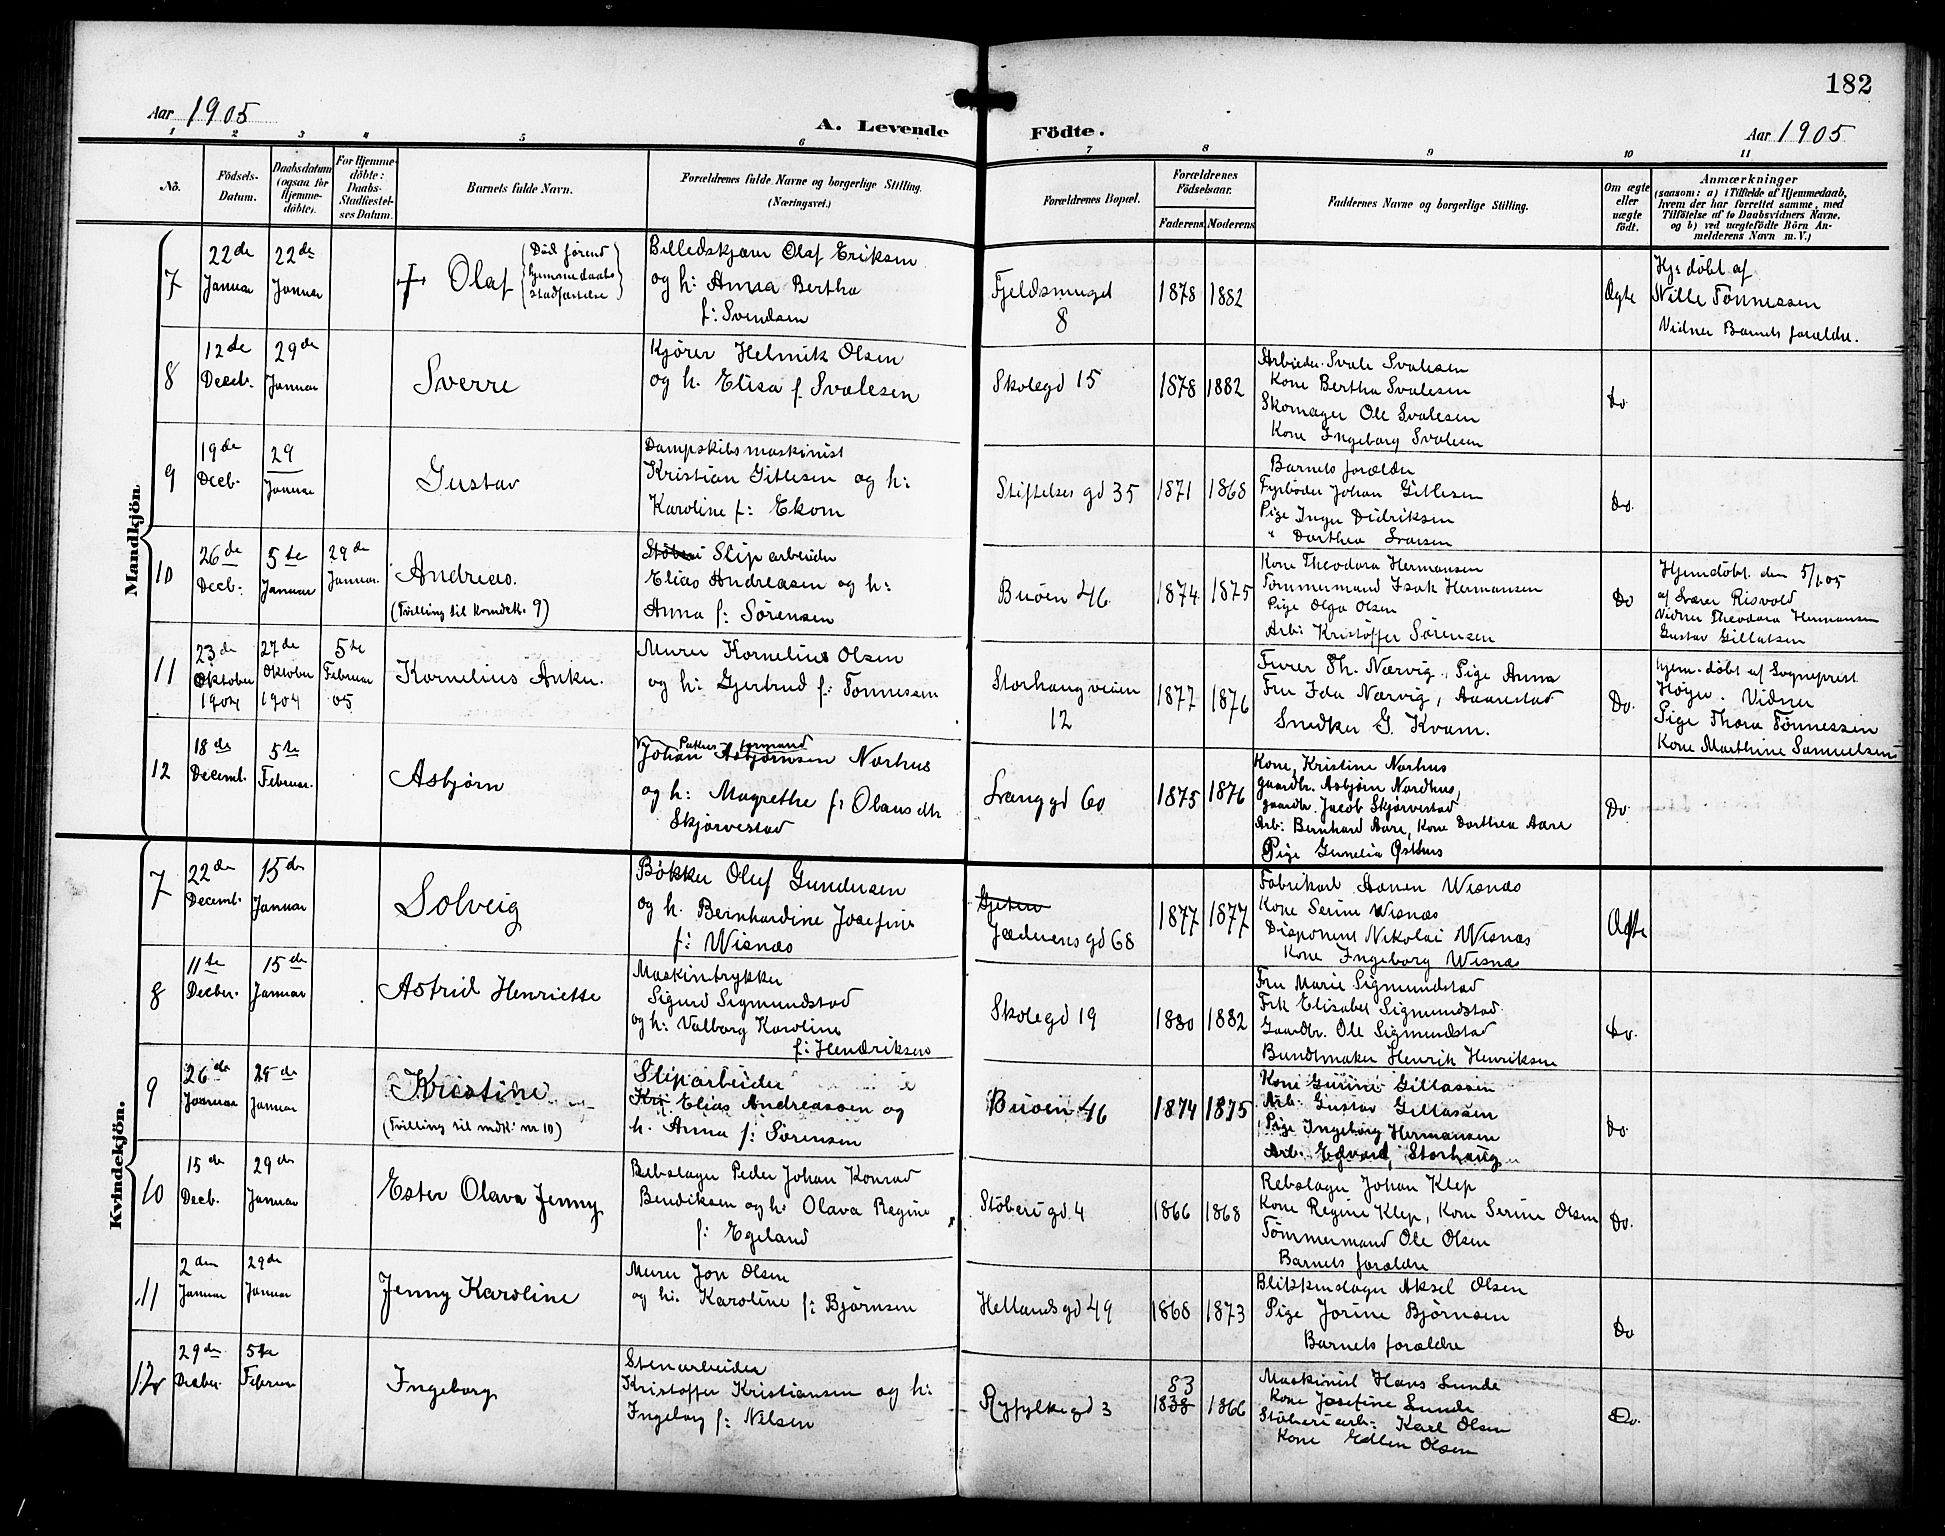 182
Aar 1905
A. Levende Födte.
Aar 1905
1 2 3 4 5 6 7 8 9 10 11
No.
Födsels-Datum.
Daabsdatum (ogsaa for Hjemme-döbte).
For Hjemme-döbte: Daabs-Stadfæstel-ses Datum.
Barnets fulde Navn.
Forældrenes fulde Navne og borgerlige Stilling. (Næringsvei.)
Forældrenes Bopæl.
Forældrenes Födselsaar.
Faderens Moderens
Faddernes Navne og borgerlige Stilling.
Om ægte eller uægte födt.
Anmærkninger
(saasom: a) i Tilfælde af Hjemmedaab,
hvem der har forrettet samme, med
Tilföielse af to Daabsvidners Navne.
og b) ved uægtefödte Börn An-
melderens Navn m. V.)
Mandkjön
7
22de Januar
22de Januar
Olaf
(Död förend hjemmedaabs stadfæstelse)
Billedskjærer Olaf Eriksen
og h: Anna Bertha
f: Svendsen
Fjeldsmuget 8
1878 1882
Ægte
Hj. döbt af
Nille Tönnessen
Vidner Barnets forældre.
8
12de Decb.
29de Januar
Sverre
Kjörer Helmik Olsen
og h. Elisa f. Svalesen
Skolegd 15
1878 1882
Arbeider Svale Svalesen
Kone Bertha Svalesen
Skomager Ole Svalesen
Kone Ingeborg Svalesen
Do
9
19de Decb.
29 Januar
Gustav
Dampskibsmaskinist
Kristian Gitlesen og h:
Karoline f: Ekom
Stiftelses gd 35
1871 1868
Barnets forældre
Fyrböder Johan Gitlesen
Pige Inger Didriksen
" Dorthea Svarsen
Do.
10
26de Decb.
5te Januar
29de Januar.
Andreas.
(Tvilling til kvindek. 9)
Slip arbeider
Elias Andreasen og h:
Anna f: Sörensen
Buöen 46
1874 1875
Kone Theodora Hermansen
Tömmermand Isak Hermansen
Pige Olga Olsen
Arb: Kristoffer Sörensen
Do
Hjemdöbt. den 5/1 05
af Lærer Risvold
Vidner Theodora Hermansen
Gustav Gillatsen
11
23de Oktober 1904
27de Oktober 1904
5te Februar 05
Kornelius Anker.
Murer Kornelius Olsen
og h: Gjertrud f: Tönnesen
Storhaugveien 12
1877 1876
Furer Th. Nærvig, Pige Anna
Fru Ida Nærvig, Aarestad
Snedker G. Kvam.
Do.
hjem. döbt af Sogneprest
Höyer. Vidner
Pige Thora Tönnessen
Kone Marthine Samuelsen
12
18de Decemb.
5te Februar.
Asbjörn
Pakhusformand
Johan Asbjörnsen Norhus
og h: Magrethe f: Olausdtr
Skjörvestad
Lvang gd 60
1875 1876
Kone, Kristine Norhus
gaardbr. Asbjörn Nordhus,
gaardbr. Jacob Skjörvestad
Arb: Bernhard Aare, Kone Dorthea Aare
Pige Gunelia Östhus
Do.
Kvindekjön.
7
22de Decemb.
15de Januar
Solveig
Bökker Oluf Gundersen
og h. Bernhardine Josefine
f: Wisnæs
Jædrens gd 68
1877 1877
Fabrikarb. Aanen Wisnæs
Kone Serine Wisnæs
Disponent Nikolai Wisnæs
Kone Ingeborg Wisnæs
Ægte
8
11te Decbr.
15de Januar
Astrid Henriette
Maskintrykker
Sigurd Sigmundstad
og h: Valborg Karoline
f: Hendriksen
Skolegd 19
1880 1882
Fru Marie Sigmundstad
Frk Elisabet Sigmundstad
Gaardbr. Ole Sigmundstad
Buntmaker Henrik Henriksen
Do.
9
26de Januar
25de Januar
Kristine
(Tvilling til mdk: nr 10)
Sliparbeider
Kri Elias Andreassen og
h. Anna f: Sörensen
Buöen 46
1874 1875
Kone Gurine Gillassen
Arb. Gustav Gillassen
Pige Ingeborg Hermansen
Arb. Edvard Storhaug
Do
10
15de Decb.
29de Januar
Ester Olava Jenny
Rebslager Peder Johan Konrad
Bendiksen og h: Olava Regine
f: Egeland
Stöberi gd. 4
1866 1868
Rebslager Johan Klep
Kone Regine Klep, Kone Serine Olsen
Tömmermand Ole Olsen
Barnets forældre
Do.
11
2den Januar
29de Januar
Jenny Karoline
Murer Jon Olsen
og h: Karoline f: Björnsen
Hetlandsgd 49
1868 1873
Blikkenslager Aksel Olsen
Pige Jorine Björnsen
Barnets forældre
Do
12
29de Decber
5te Februar
Ingeborg
Stenarbeider
Kristoffer Kristiansen og h:
Ingeborg f: Nilsen
Ryfylke gd 3
83
1838 1866
Maskinist Hans Lunde
Kone Josefine Lunde
Stöberiarb: Karl Olsen
Kone Ellen Olsen
Do.